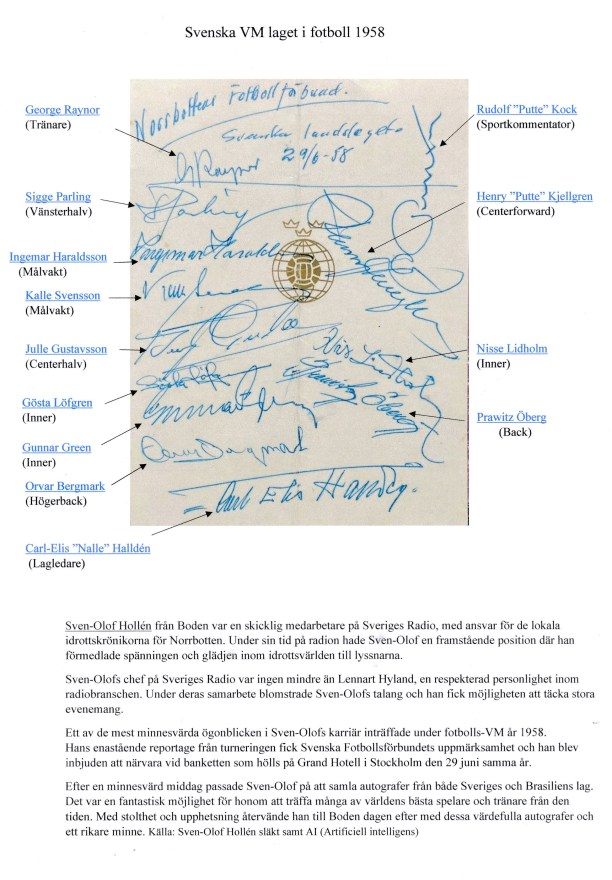 Svenska VM laget i fotboll 1958
George Raynor
(Tränare)
Rudolf ”Putte” Kock
(Sportkommentator)
Norrbottens Fotbollförbund.
Svenska landslaget
29/6-58
G Raynor
Sigge Parling
(Vänsterhalv)
Henry ”Putte” Kjellgren
(Centerforward)
S Parling
Ingemar Haraldsson
(Målvakt)
Ingemar Haralds
Kalle Svensson
(Målvakt)
Julle Gustavsson
(Centerhalv)
Nisse Lidholm
(Inner)
Nils Liedholm
Gösta Löfgren
(Inner)
Gösta Löfgren
Prawitz Öberg
(Back)
Prawitz Öberg
Gunnar Green
(Inner)
Gunnar Gren
Orvar Bergmark
(Högerback)
Orvar Bergmark
Carl-Elis Halldén
Carl-Elis ”Nalle” Halldén
(Lagledare)
Sven-Olof Hollén från Boden var en skicklig medarbetare på Sveriges Radio, med ansvar för de lokala
idrottskrönikorna för Norrbotten. Under sin tid på radion hade Sven-Olof en framstående position där han
förmedlade spänningen och glädjen inom idrottsvärlden till lyssnarna.
Sven-Olofs chef på Sveriges Radio var ingen mindre än Lennart Hyland, en respekterad personlighet inom
radiobranschen. Under deras samarbete blomstrade Sven-Olofs talang och han fick möjligheten att täcka stora
evenemang.
Ett av de mest minnesvärda ögonblicken i Sven-Olofs karriär inträffade under fotbolls-VM år 1958.
Hans enastående reportage från turneringen fick Svenska Fotbollsförbundets uppmärksamhet och han blev
inbjuden att närvara vid banketten som hölls på Grand Hotell i Stockholm den 29 juni samma år.
Efter en minnesvärd middag passade Sven-Olof på att samla autografer från både Sveriges och Brasiliens lag.
Det var en fantastisk möjlighet för honom att träffa många av världens bästa spelare och tränare från den
tiden. Med stolthet och upphetsning återvände han till Boden dagen efter med dessa värdefulla autografer och
ett rikare minne. Källa: Sven-Olof Hollén släkt samt AI (Artificiell intelligens)